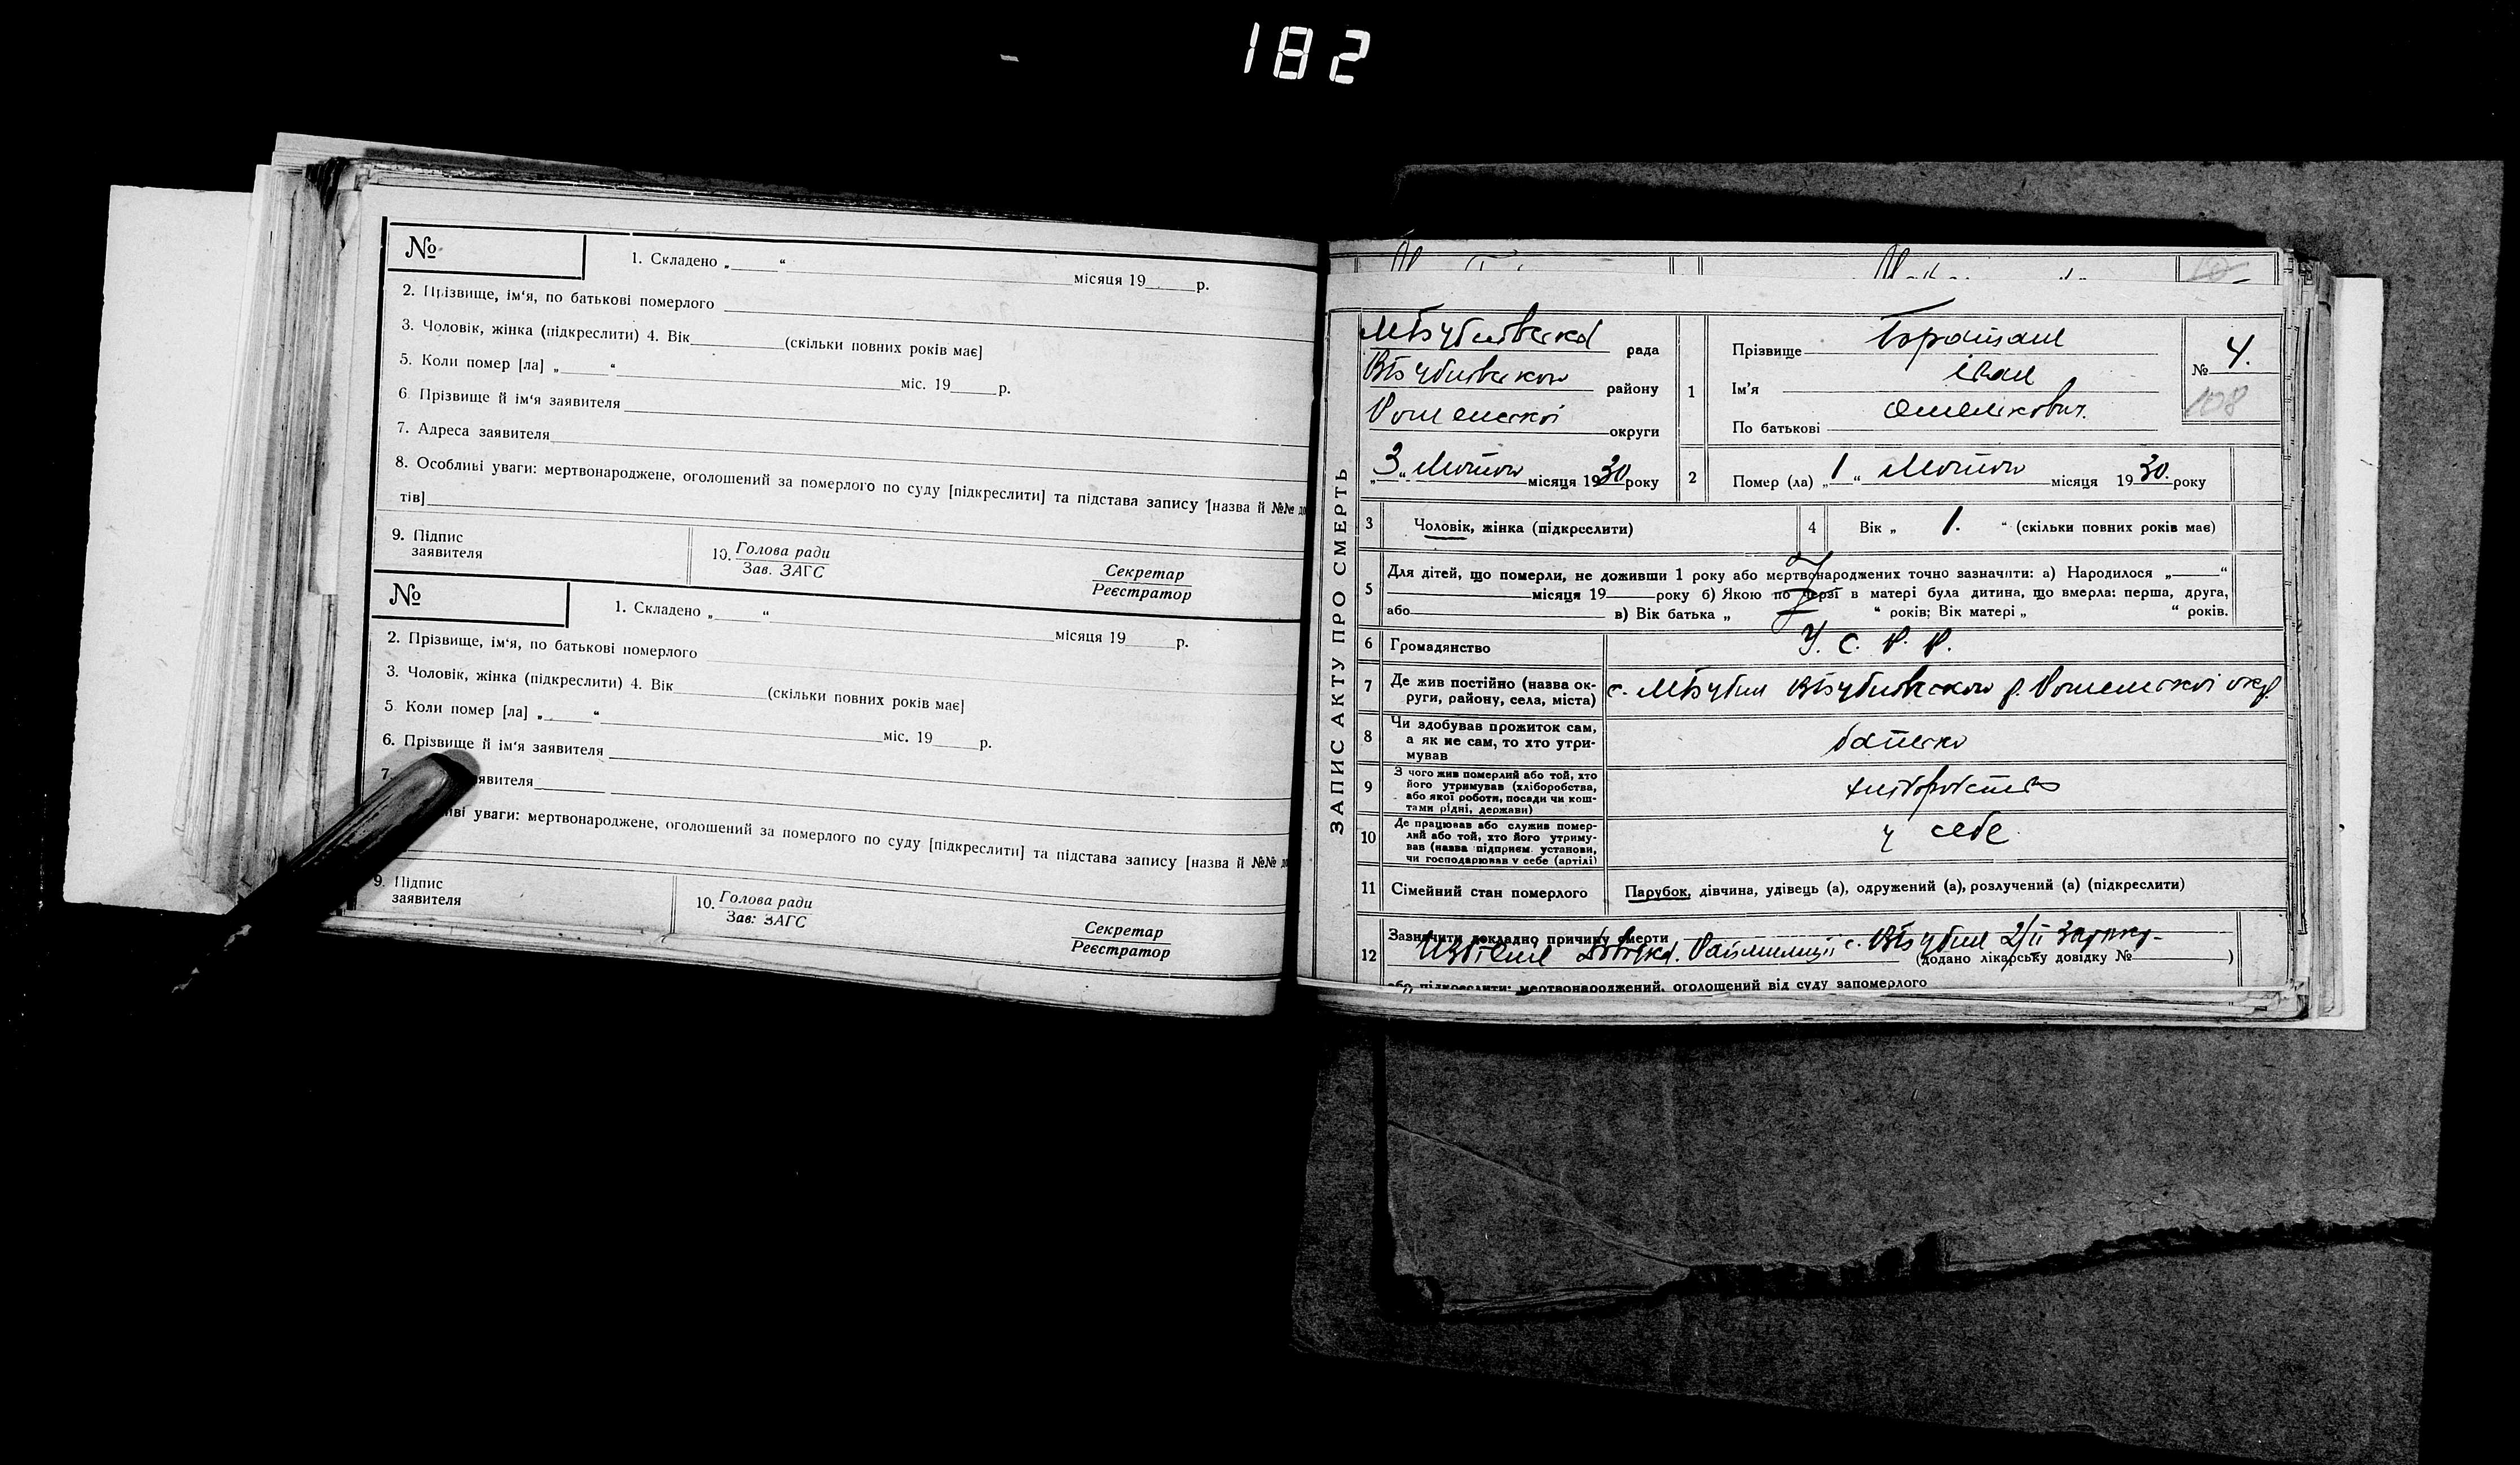 182
№
1. Складено „ “ місяця 19 р.
2. Прізвище, ім‘я, по батькові померлого
3. Чоловік, жінка (підкреслити) 4. Вік (скільки повних років має]
5. Коли помер [ла] „ “ міс. 19 р.
6. Прізвище й ім‘я заявителя
7. Адреса заявителя
8. Особливі уваги: мертвонароджене, оголошений за померлого по суду [підкреслити] та підстава запису [назва й №№ до
тів]
9. Підпис
заявителя
10. Голова ради
Зав. ЗАГС
Секретар
Реєстратор
№
1. Складено „ “ місяця 19 р.
2. Прізвище, ім‘я, по батькові померлого
3. Чоловік, жінка (підкреслити) 4. Вік (скільки повних років має]
5. Коли помер [ла] „ “ міс. 19 р.
6. Прізвище й ім‘я заявителя
7. явителя
иві уваги: мертвонароджене, оголошений за померлого по суду [підкреслити] та підстава запису [назва й №№ до
9. Підпис
заявителя
10. Голова ради
Зав: ЗАГС
Секретар
Реєстратор
ЗАПИС АКТУ ПРО СМЕРТЬ
рада
району
округи
„3“ Лютого місяця 1930 року
1
Прізвище
Ім'я Іван
По батькові Омелькович.
№ 4.
108
2
Помер (ла) „1“ Лютого місяця 1930. року
3 Чоловік, жінка (підкреслити)
4 Вік „ 1. “ (скільки повних років має)
5 Для дітей, що померли, не доживши 1 року або мертвонароджених точно зазначити: а) Народилося „ “
місяця 19 року б) Якою по черзі в матері була дитина, що вмерла: перша, друга,
або в) Вік батька „ “ років; Вік матері „ “ років.
6 Громадянство У. С. Р. Р.
7 Де жив постійно (назва ок-
руги, району, села, міста)
8 Чи здобував прожиток сам,
а як не сам, то хто утри-
мував
батько
9 З чого жив померлий або той, хто
його утримував (хліборобства,
або якої роботи, посади чи кош-
тами рідні, держави)
хліборобство
10 Де працював або служив помер-
лий або той, хто його утриму-
вав (назва підприєм. установи,
чи господарював у себе (артілі)
у себе
11 Сімейний стан померлого Парубок, дівчина, удівець (а), одружений (а), розлучений (а) (підкреслити)
12 Зазначити докладно причину смерти
(додано лікарську довідку № )
або підкреслити: мертвонароджений, оголошений від суду запомерлого